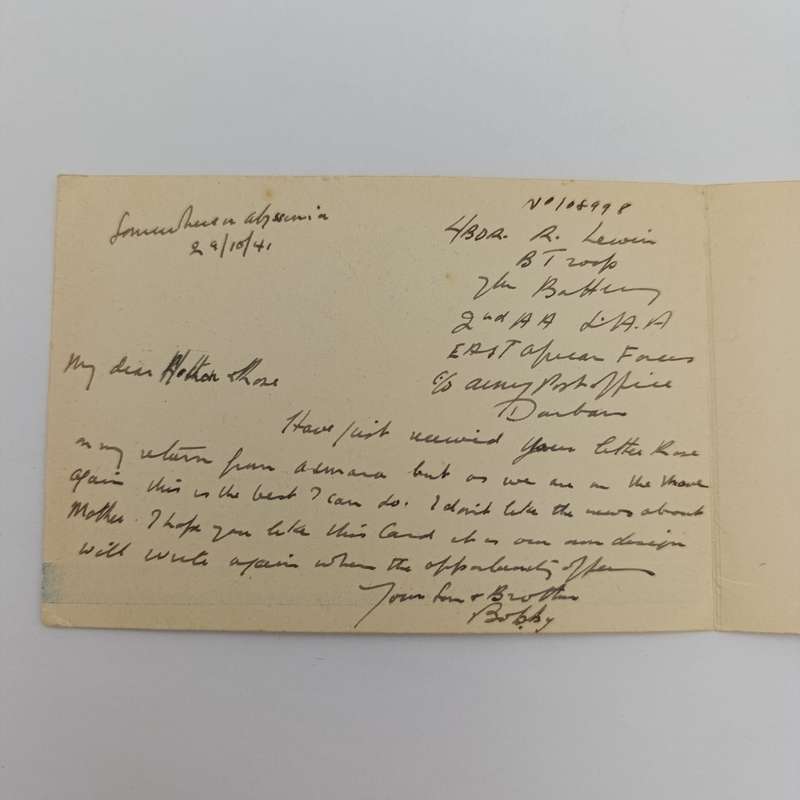 Somewhere in Abyssinia
29/10/41
No 108998
L/BDR. R. Lewin
B Troop
7th Battery
2nd AA L.A.A
EAST African Forces
c/o Army Post office
Durban
My dear Mother & Rose
Have just received your letter Rose
on my return from Asmara but as we are on the move
again this is the best I can do. I don't like the news about
Mother. I hope you like this Card it is our own design
will write again when the opportunity offers
Your Son & Brother
Bobby